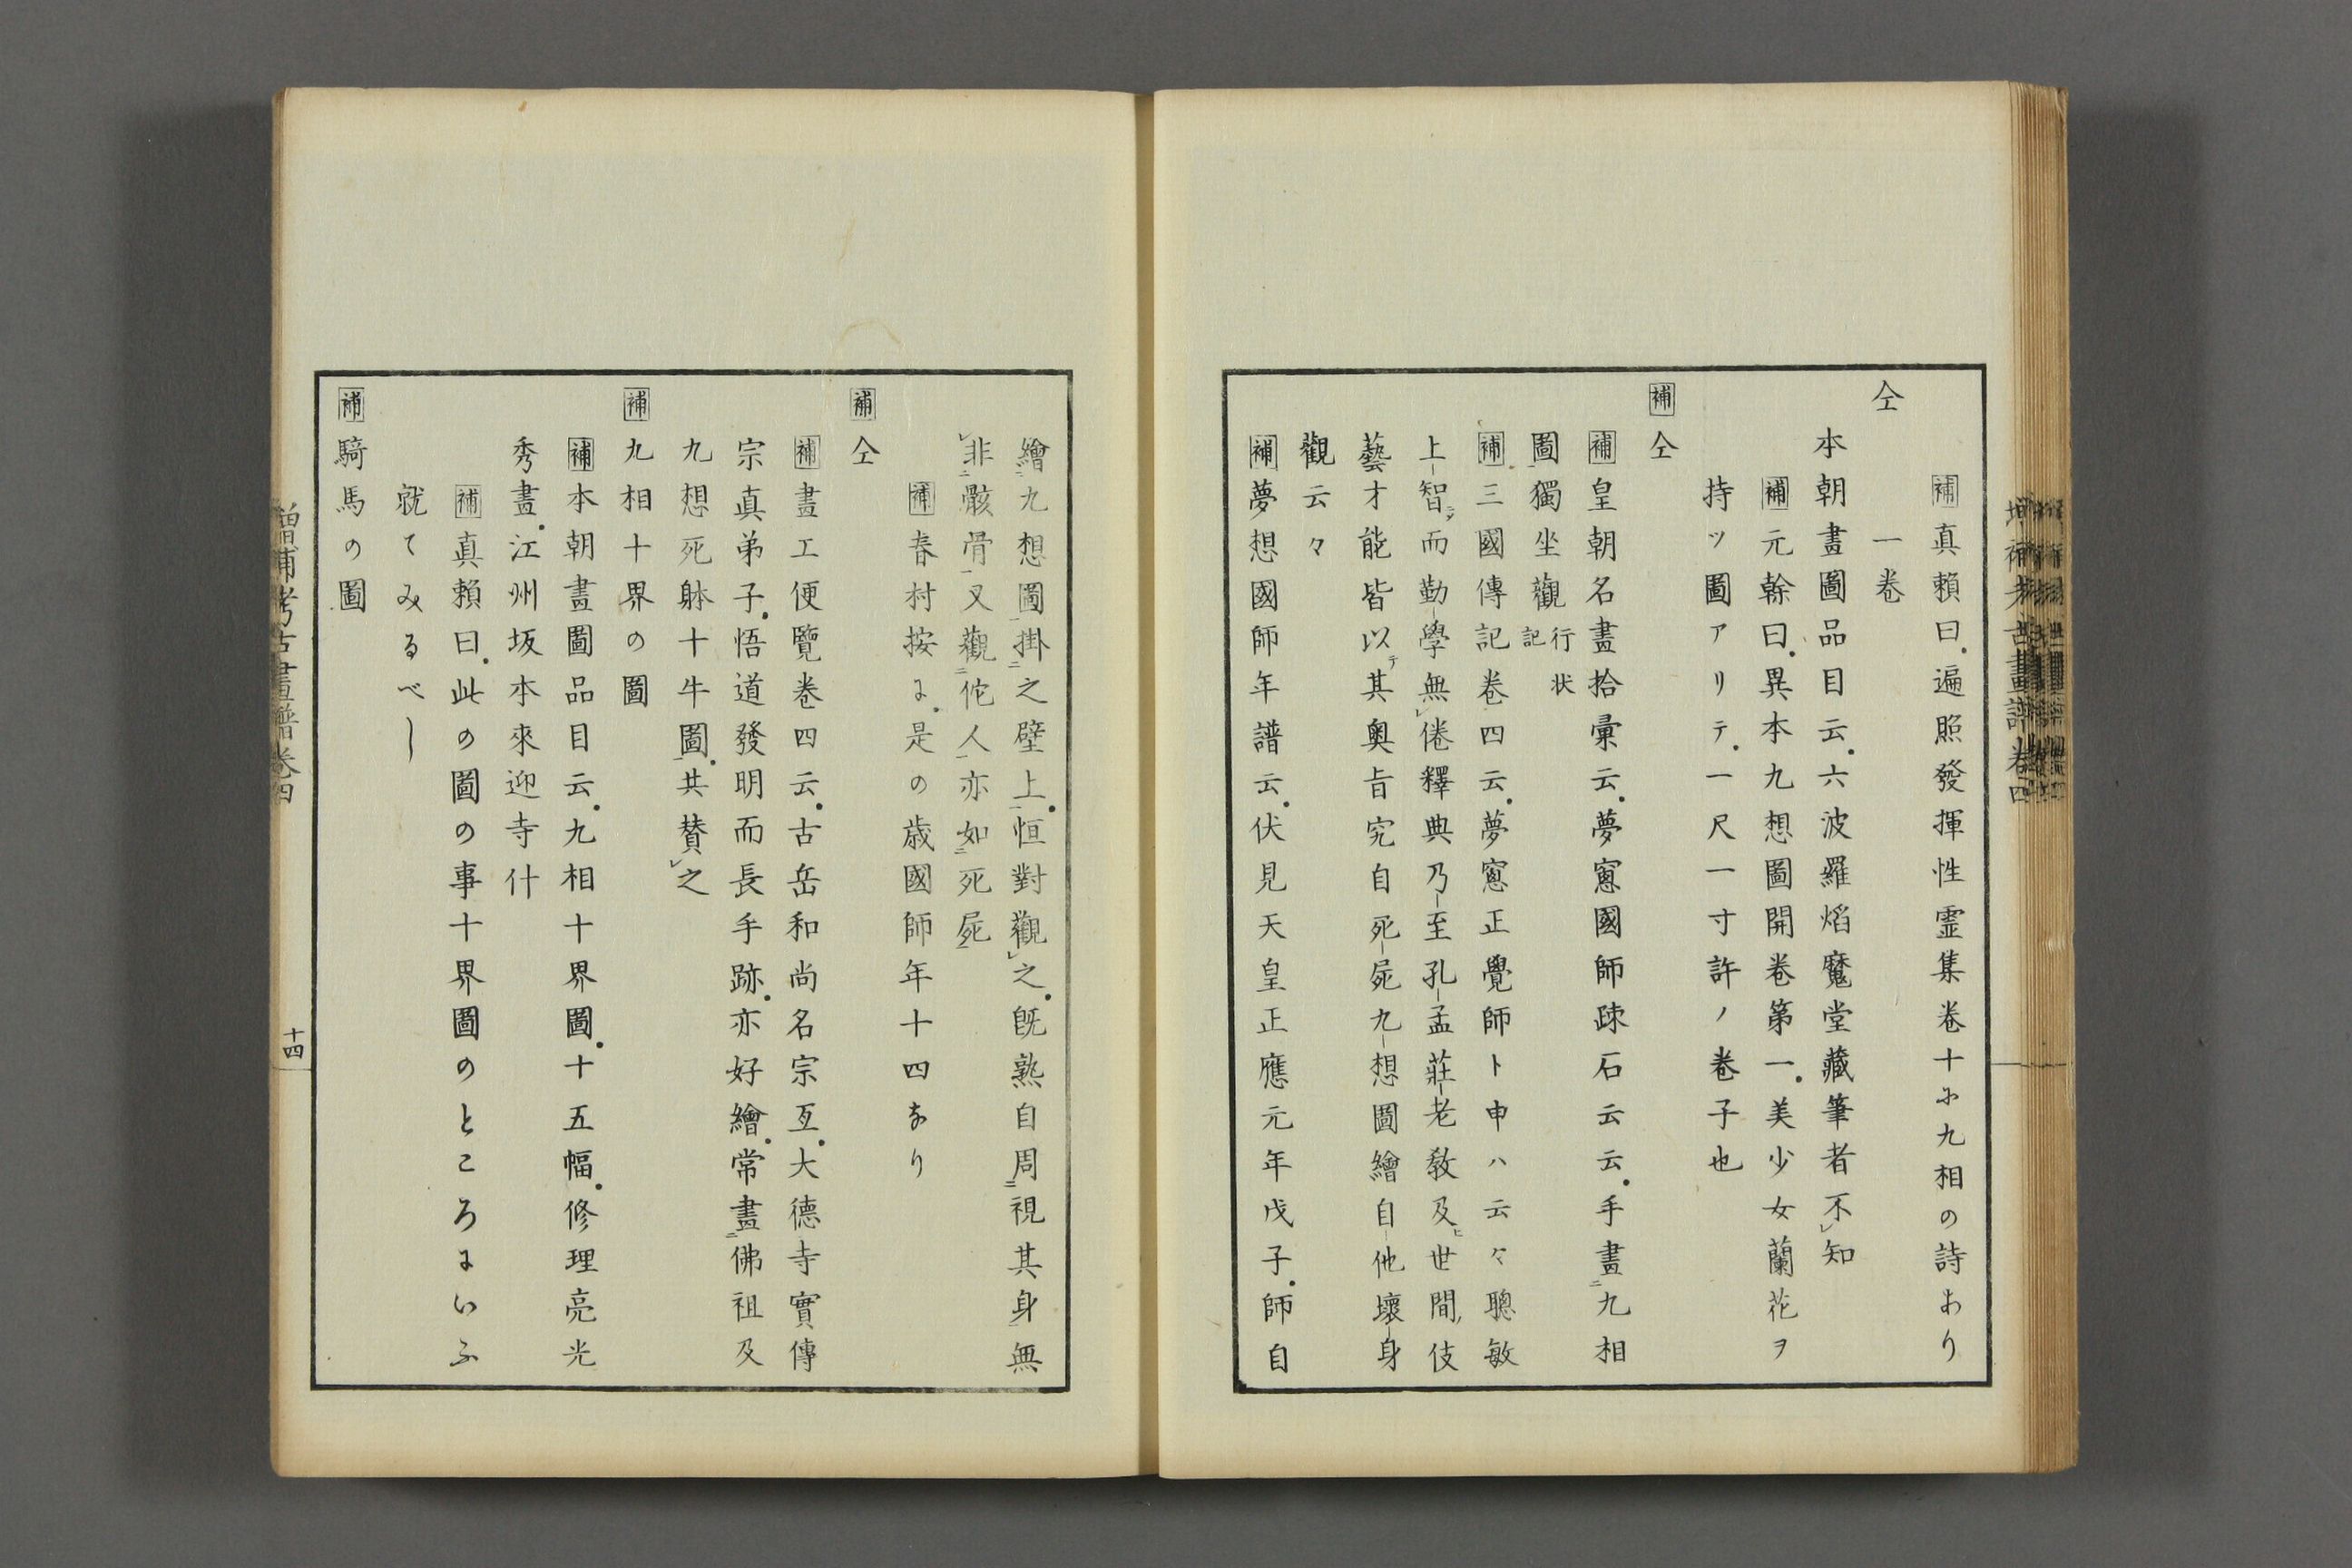 補真頼曰遍照發揮性霊集卷十に九相の詩あり
仝一卷
本朝畫圖品目云六波羅焰魔堂藏筆者不レ知
補元幹曰異本九想圖開卷第一美少女蘭花ヲ
持ツ圖アリテ一尺一寸許ノ卷子也
補仝
補皇朝名畫拾彙云夢窻國師疎石云云手畫二九相
圖獨坐觀行状記
補三國傳記卷四云夢窻正覺師ト申ハ云々聰敏
上智ニテ而勤學無レ倦釋典乃至孔孟莊老教及ヒ世間伎
藝才能皆以テ其奧旨究自死屍九想圖繪自他壞身
觀云々
補夢想國師年譜云伏見天皇正應元年戊子師自
繪二九想圖一掛二之壁上一恒對觀レ之既熟自周二視其身一無
レ非二骸骨一又觀二佗人一亦如二死屍一
補春村按に是の歳國師年十四なり
補仝
補畫工便覽卷四云古岳和尚名宗亙大德寺實傳
宗真弟子悟道發明而長手跡亦好繪常畫二佛祖及
九想死躰十牛圖一共賛レ之
補九相十界の圖
補本朝畫圖品目云九相十界圖十五幅修理亮光
秀畫江州坂本來迎寺什
補真頼曰此の圖の事十界圖のところにいふ
就てみるべし
補騎馬の圖
増補考古畫譜卷四
十四
増補考古畫譜卷四